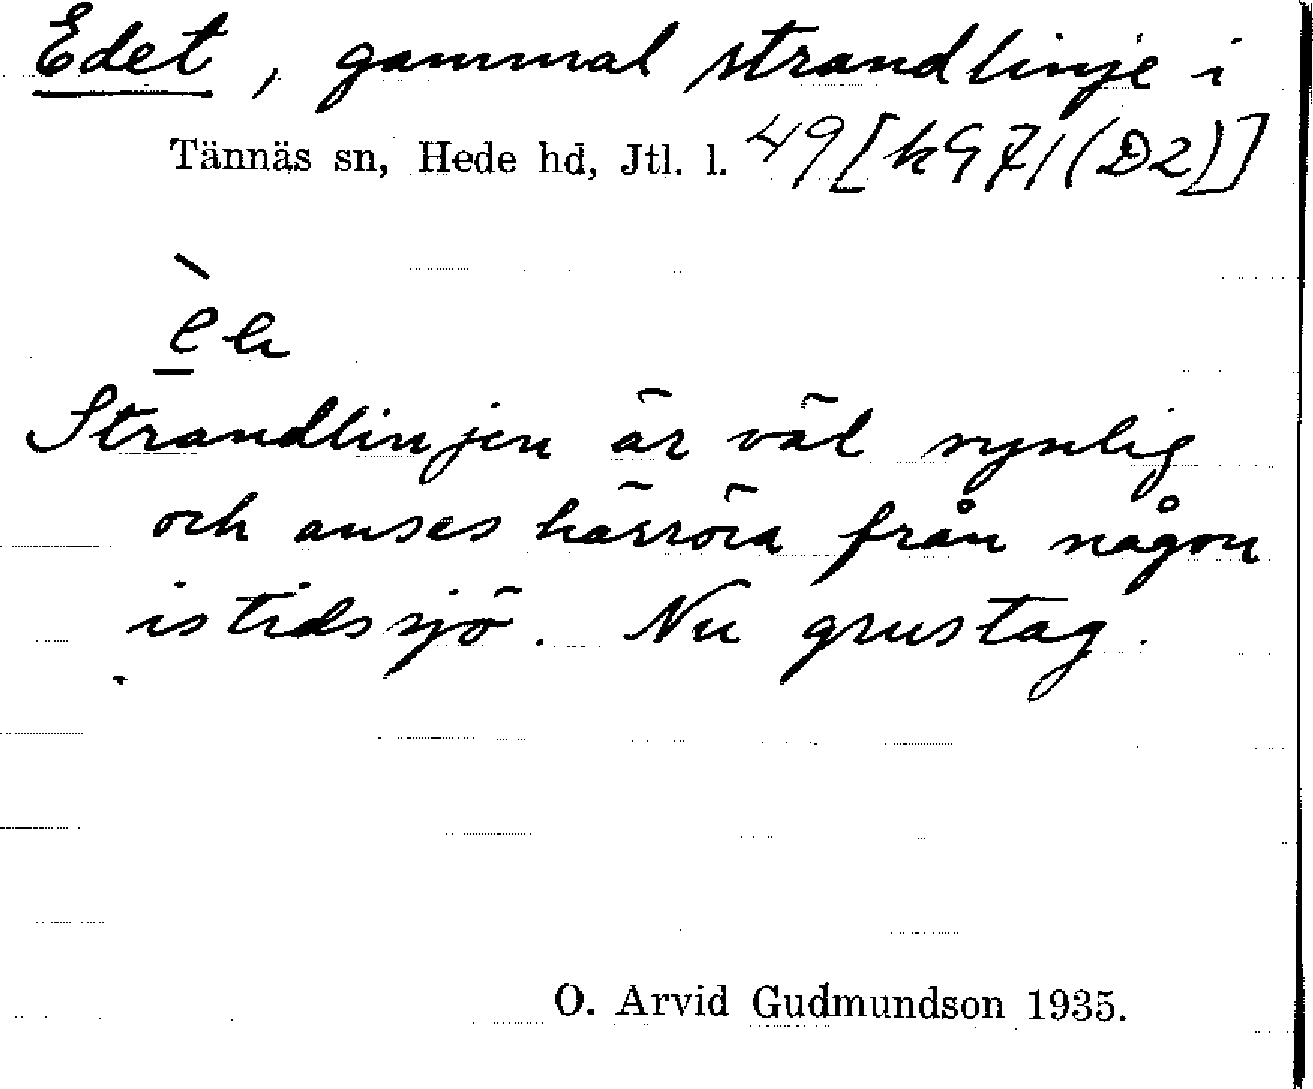 Edet, gammal strandlinje i
Tännäs sn, Hede hd, Jtl. l. 49 [k971(D2)]
Strandlinjen är väl synlig
och anses härröra från någon
istidssjö. Nu grustag.
O. Arvid Gudmundson 1935.